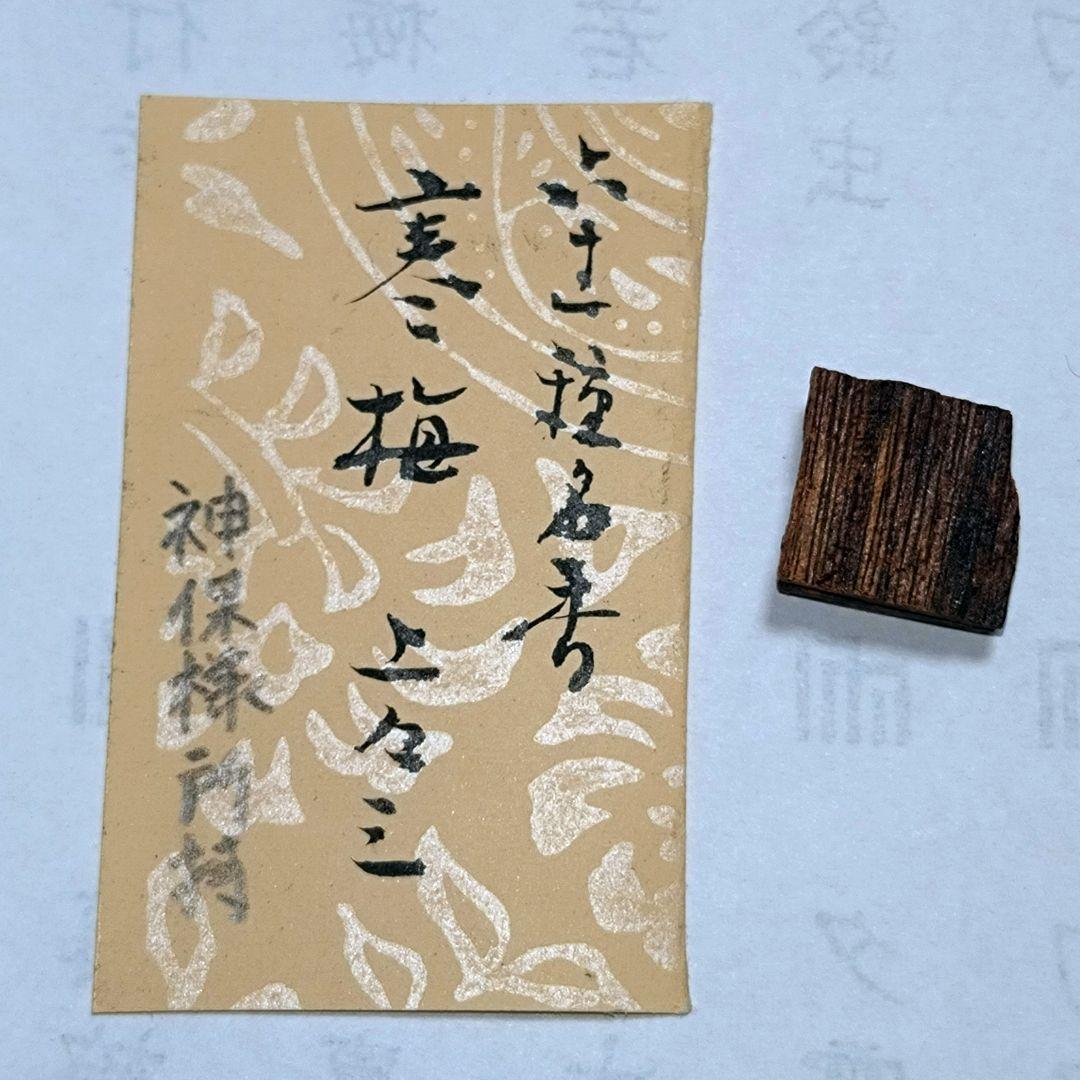 六十一種名香
寒梅 上々三
神保様所持